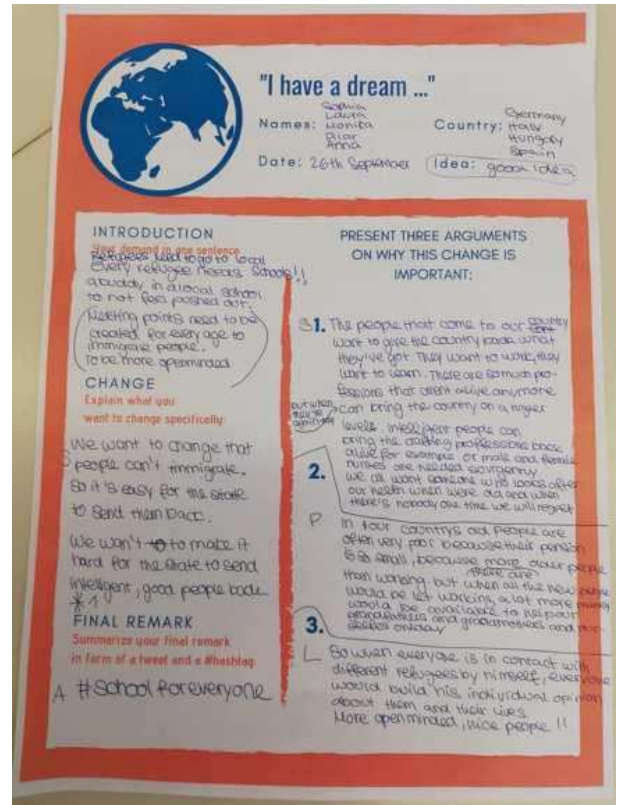 "I have a dream ..."
Names: Sophia
Laura
Monika
Pilar
Anna
Country: Germany
Italy
Hungary
Spain
Date: 26th September
Idea: good idea
INTRODUCTION
Your demand in one sentence
Refugees need to go to local
Schools!!
Every refugee needs
a buddy in a local school
to not feel pushed out.
Meeting points need to be
created for every age to
immigrate people.
To be more openminded
CHANGE
Explain what you
want to change specifically
We want to change that
people can't immigrate.
So it's easy for the state
to send them back.
We want to make it
hard for the state to send
intelligent, good people back
*1
FINAL REMARK
Summarize your final remark
in form of a tweet and a #hashtag
A #Schoolforeveryone
PRESENT THREE ARGUMENTS
ON WHY THIS CHANGE IS
IMPORTANT:
S 1. The people that come to our country
want to give the country back what
they've got. They want to work, they
want to learn. There are so much pro-
fessions that arent alive anymore
but when
can bring the country on a higher
level. Intelligent people can
bring the crafting professions back
alive for example. Or male and female
nurses are needed so urgently
we all want someone who looks after
our health when were old and when
there's nobody one time we will regret
2.
P In our countrys old people are
often very poor because their pension
is so small, because there are more older people
than working, but when all the new people
would be let working a lot more money
would be available to help our
grandfathers and grandmothers and our-
selves oneday
3.
L So when everyone is in contact with
different refugees by himself, everyone
would build his individual opinion
about them and their lives.
More open minded, nice people !!